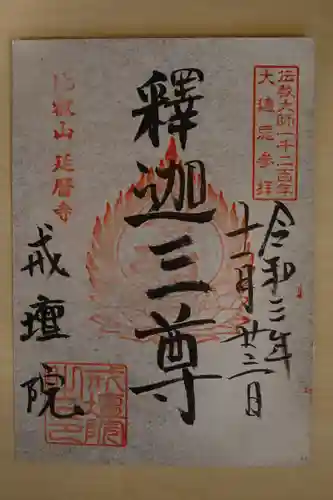 伝教大師一千二百年
大遠忌参拝
令和三年
十一月廿三日
釋迦三尊
比叡山延暦寺
戒壇院